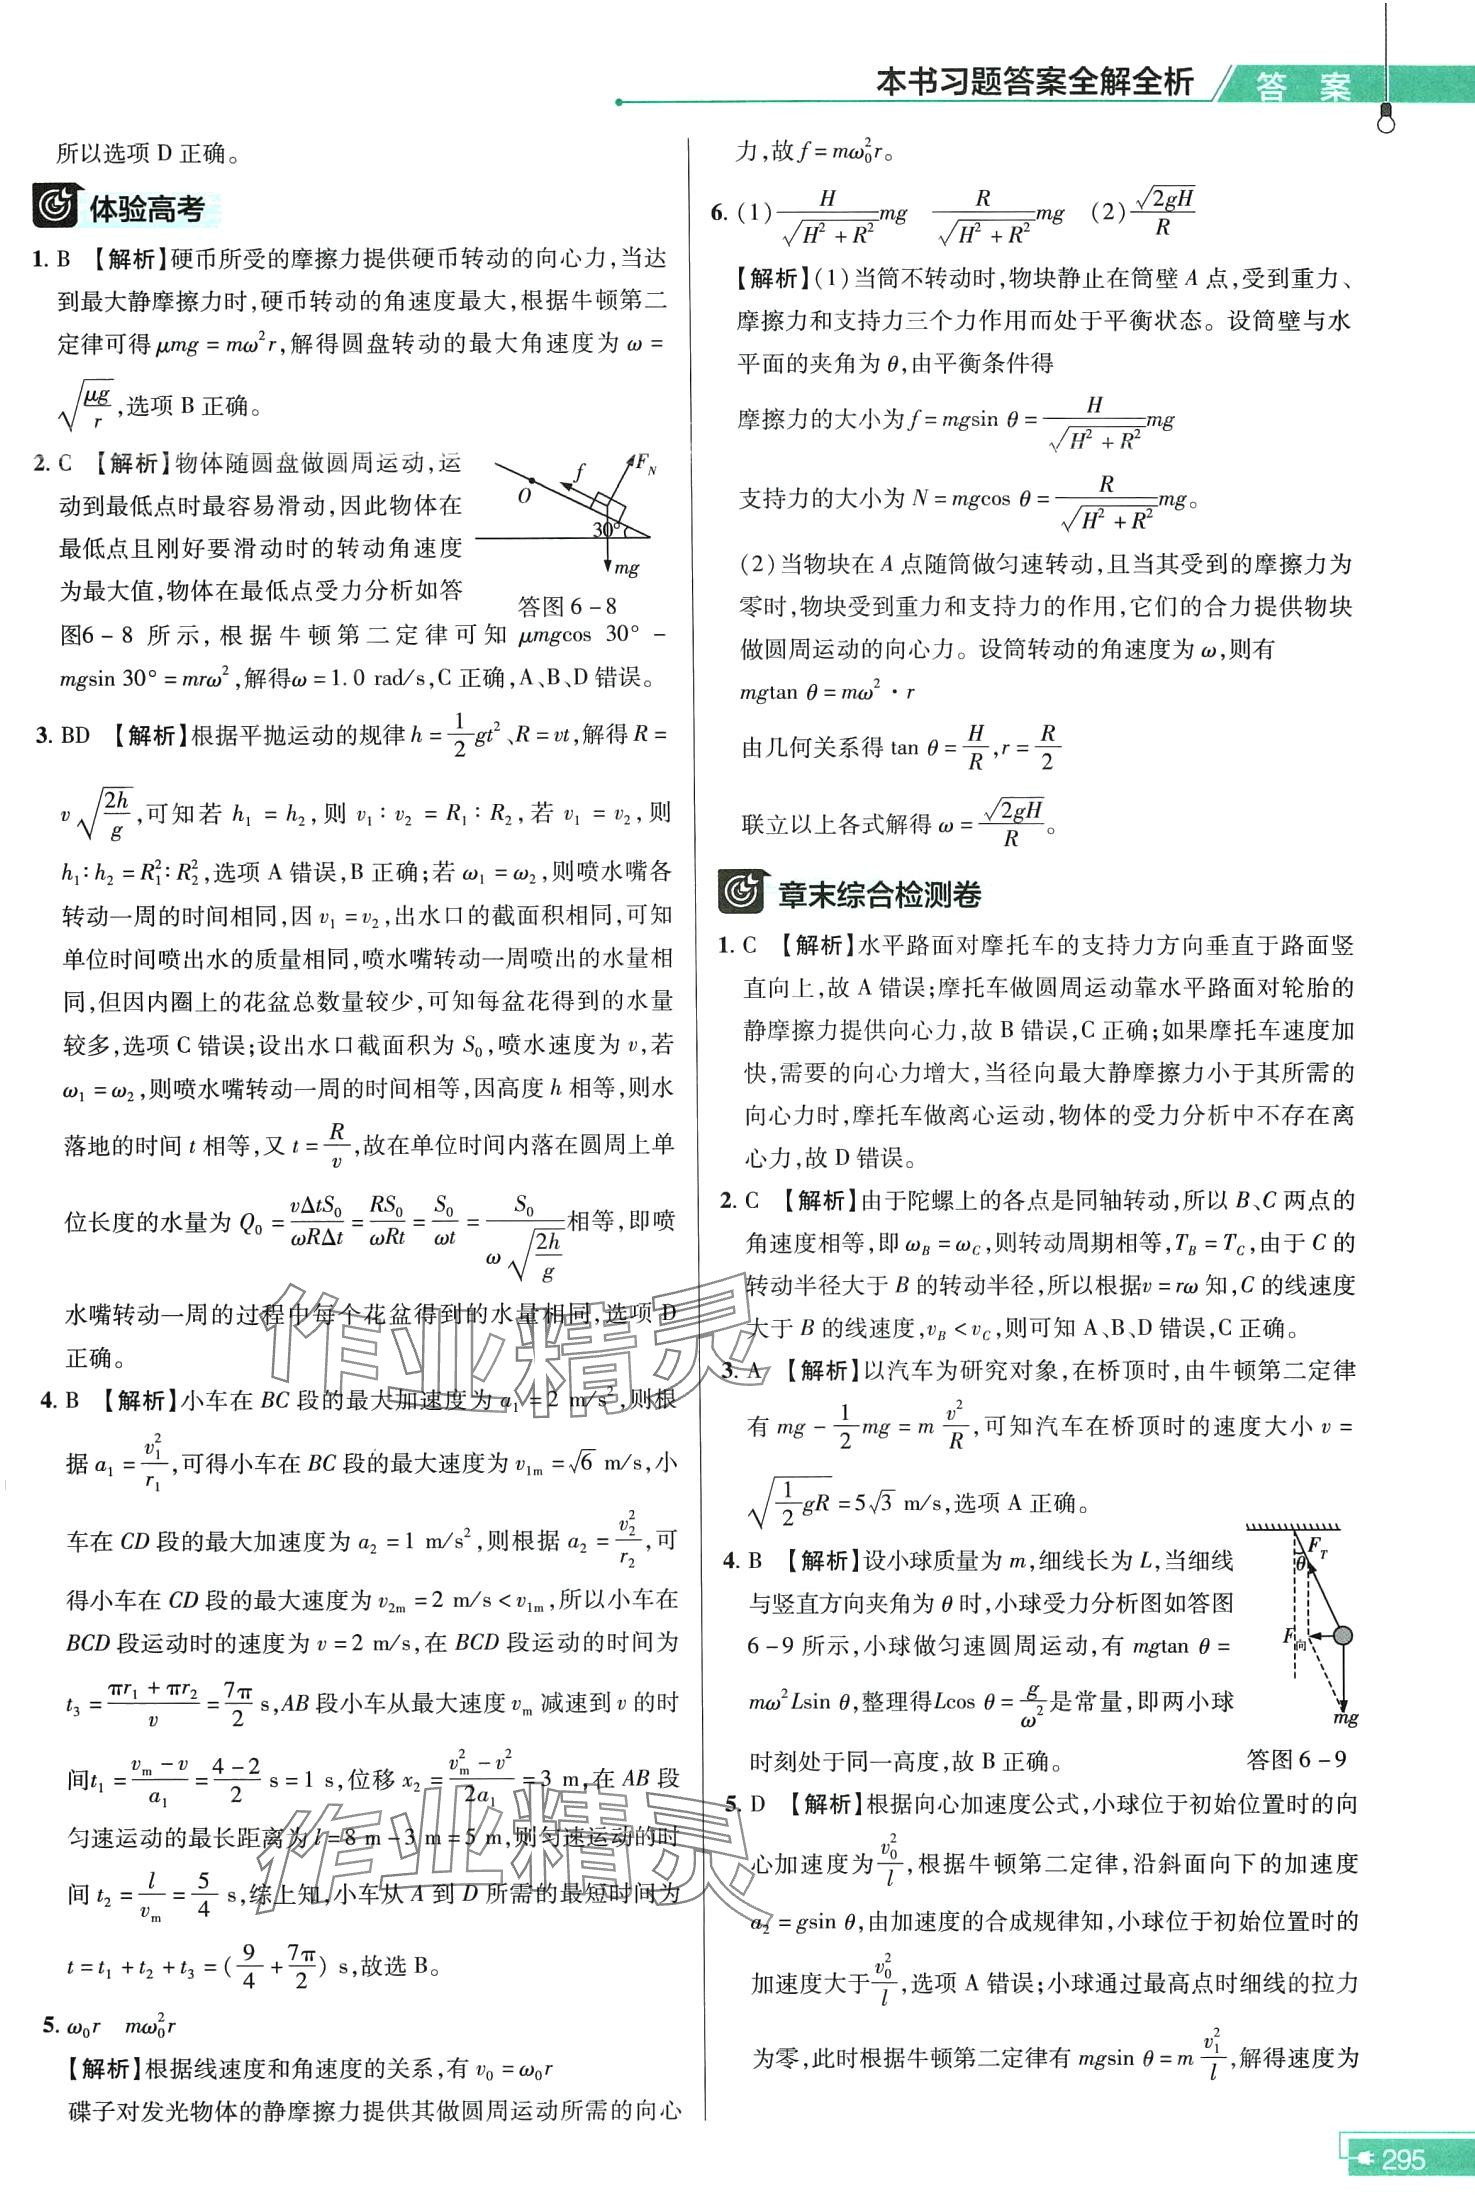 本书习题答案全解全析
答 案
所以选项 D 正确。
体验高考
1. B 【解析】硬币所受的摩擦力提供硬币转动的向心力,当达
到最大静摩擦力时,硬币转动的角速度最大,根据牛顿第二
定律可得 μmg = mω²r,解得圆盘转动的最大角速度为 ω =
√(μg/r),选项 B 正确。
2. C 【解析】物体随圆盘做圆周运动,运
动到最低点时最容易滑动,因此物体在
最低点且刚好要滑动时的转动角速度
为最大值,物体在最低点受力分析如答
图6-8 所示,根据牛顿第二定律可知 μmgcos 30° -
mgsin 30° = mrω²,解得ω = 1.0 rad/s,C 正确,A、B、D 错误。
O f F_N 30° mg
答图 6-8
3. BD 【解析】根据平抛运动的规律 h = 1/2 gt²、R = vt,解得 R =
v√(2h/g),可知若 h₁ = h₂,则 v₁∶v₂ = R₁∶R₂,若 v₁ = v₂,则
h₁∶h₂ = R₁²∶R₂²,选项 A 错误,B 正确;若 ω₁ = ω₂,则喷水嘴各
转动一周的时间相同,因 v₁ = v₂,出水口的截面积相同,可知
单位时间喷出水的质量相同,喷水嘴转动一周喷出的水量相
同,但因内圈上的花盆总数量较少,可知每盆花得到的水量
较多,选项 C 错误;设出水口截面积为 S₀,喷水速度为 v,若
ω₁ = ω₂,则喷水嘴转动一周的时间相等,因高度 h 相等,则水
落地的时间 t 相等,又 t = R/v,故在单位时间内落在圆周上单
位长度的水量为 Q₀ = vΔtS₀/(ωRΔt) = RS₀/(ωRt) = S₀/(ωt) = S₀/(ω√(2h/g))相等,即喷
水嘴转动一周的过程中每个花盆得到的水量相同,选项 D
正确。
4. B 【解析】小车在 BC 段的最大加速度为 a₁ = 2 m/s²,则根
据 a₁ = v₁²/r₁,可得小车在 BC 段的最大速度为 v₁ₘ = √6 m/s,小
车在 CD 段的最大加速度为 a₂ = 1 m/s²,则根据 a₂ = v₂²/r₂,可
得小车在 CD 段的最大速度为 v₂ₘ = 2 m/s < v₁ₘ,所以小车在
BCD 段运动时的速度为 v = 2 m/s,在 BCD 段运动的时间为
t₃ = (πr₁ + πr₂)/v = 7π/2 s,AB 段小车从最大速度 vₘ 减速到 v 的时
间t₁ = (vₘ - v)/a₁ = (4-2)/2 s = 1 s,位移 x₂ = (vₘ² - v²)/(2a₁) = 3 m,在 AB 段
匀速运动的最长距离为 l = 8 m - 3 m = 5 m,则匀速运动的时
间 t₂ = l/vₘ = 5/4 s,综上知,小车从 A 到 D 所需的最短时间为
t = t₁ + t₂ + t₃ = (9/4 + 7π/2) s,故选 B。
5. ω₀r mω₀²r
【解析】根据线速度和角速度的关系,有 v₀ = ω₀r
碟子对发光物体的静摩擦力提供其做圆周运动所需的向心
力,故 f = mω₀²r。
6. (1) H/√(H² + R²) mg R/√(H² + R²) mg (2) √(2gH)/R
【解析】(1)当筒不转动时,物块静止在筒壁 A 点,受到重力、
摩擦力和支持力三个力作用而处于平衡状态。设筒壁与水
平面的夹角为 θ,由平衡条件得
摩擦力的大小为 f = mgsin θ = H/√(H² + R²) mg
支持力的大小为 N = mgcos θ = R/√(H² + R²) mg。
(2)当物块在 A 点随筒做匀速转动,且当其受到的摩擦力为
零时,物块受到重力和支持力的作用,它们的合力提供物块
做圆周运动的向心力。设筒转动的角速度为 ω,则有
mgtan θ = mω²·r
由几何关系得 tan θ = H/R, r = R/2
联立以上各式解得 ω = √(2gH)/R。
章末综合检测卷
1. C 【解析】水平路面对摩托车的支持力方向垂直于路面竖
直向上,故 A 错误;摩托车做圆周运动靠水平路面对轮胎的
静摩擦力提供向心力,故 B 错误,C 正确;如果摩托车速度加
快,需要的向心力增大,当径向最大静摩擦力小于其所需的
向心力时,摩托车做离心运动,物体的受力分析中不存在离
心力,故 D 错误。
2. C 【解析】由于陀螺上的各点是同轴转动,所以 B、C 两点的
角速度相等,即 ω_B = ω_C,则转动周期相等,T_B = T_C,由于 C 的
转动半径大于 B 的转动半径,所以根据v = rω 知,C 的线速度
大于 B 的线速度,v_B < v_C,则可知 A、B、D 错误,C 正确。
3. A 【解析】以汽车为研究对象,在桥顶时,由牛顿第二定律
有 mg - 1/2 mg = m v²/R,可知汽车在桥顶时的速度大小 v =
√(1/2 gR) = 5√3 m/s,选项 A 正确。
4. B 【解析】设小球质量为 m,细线长为 L,当细线
与竖直方向夹角为 θ 时,小球受力分析图如答图
6-9 所示,小球做匀速圆周运动,有 mgtan θ =
mω²Lsin θ,整理得Lcos θ = g/ω²是常量,即两小球
时刻处于同一高度,故 B 正确。
θ F_T F向 mg
答图 6-9
5. D 【解析】根据向心加速度公式,小球位于初始位置时的向
心加速度为v₀²/l,根据牛顿第二定律,沿斜面向下的加速度
a₂ = gsin θ,由加速度的合成规律知,小球位于初始位置时的
加速度大于v₀²/l,选项 A 错误;小球通过最高点时细线的拉力
为零,此时根据牛顿第二定律有 mgsin θ = m v₁²/l,解得速度为
295
作业精灵
作业精灵